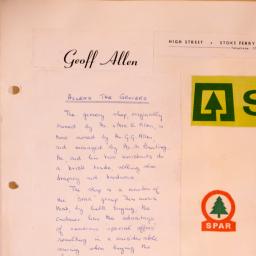 HIGH STREET • STOKE FERRY
Telephone
Geoff Allen
S
ALLENS THE GROCERS
The grocery shop, originally
owned by Mr. & Mrs. R. Allen, is
now owned by Mr. G.G. Allen
and managed by Mr. Bunting.
He and his two assistants do
a brisk trade, selling also
drapery and hardware.
The shop is a member of
the SPAR group. This means
that by bulk buying, the
customer has the advantage
of numerous special offers
resulting in a considerable
saving when buying the
SPAR